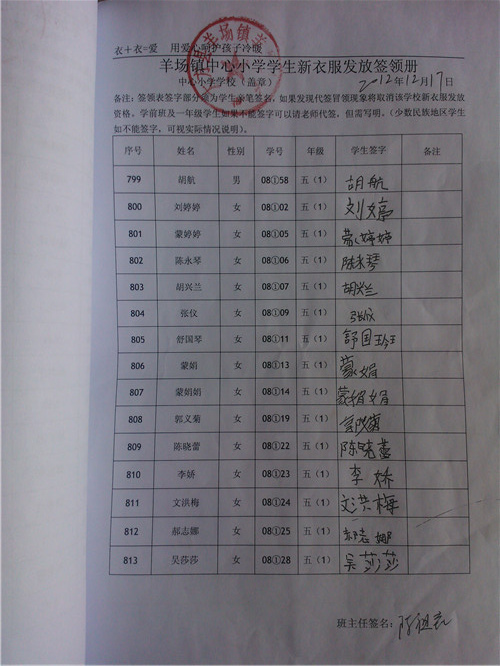 衣+衣=爱 用爱心呵护孩子冷暖
羊场镇中心小学学生新衣服发放签领册
中心小学学校(盖章) 2012年12月17日
备注:签领表签字部分须为学生亲笔签名,如果发现代签冒领现象将取消该学校新衣服发放
资格。学前班及一年级学生如果不能签字可以请老师代签,但需写明。(少数民族地区学生
如不能签字,可视实际情况说明)。
序号 姓名 性别 学号 年级 学生签字 备注
799 胡航 男 08①58 五(1) 胡航
800 刘婷婷 女 08①02 五(1) 刘婷
801 蒙婷婷 女 08①05 五(1) 蒙婷婷
802 陈永琴 女 08①06 五(1) 陈永琴
803 胡兴兰 女 08①07 五(1) 胡兴兰
804 张仪 女 08①09 五(1) 张仪
805 舒国琴 女 08①11 五(1) 舒国琴
806 蒙娟 女 08①13 五(1) 蒙娟
807 蒙娟娟 女 08①14 五(1) 蒙娟娟
808 郭义菊 女 08①19 五(1) 郭义菊
809 陈晓蕾 女 08①22 五(1) 陈晓蕾
810 李娇 女 08①23 五(1) 李娇
811 文洪梅 女 08①24 五(1) 文洪梅
812 郝志娜 女 08①25 五(1) 郝志娜
813 吴莎莎 女 08①28 五(1) 吴莎莎
班主任签名: